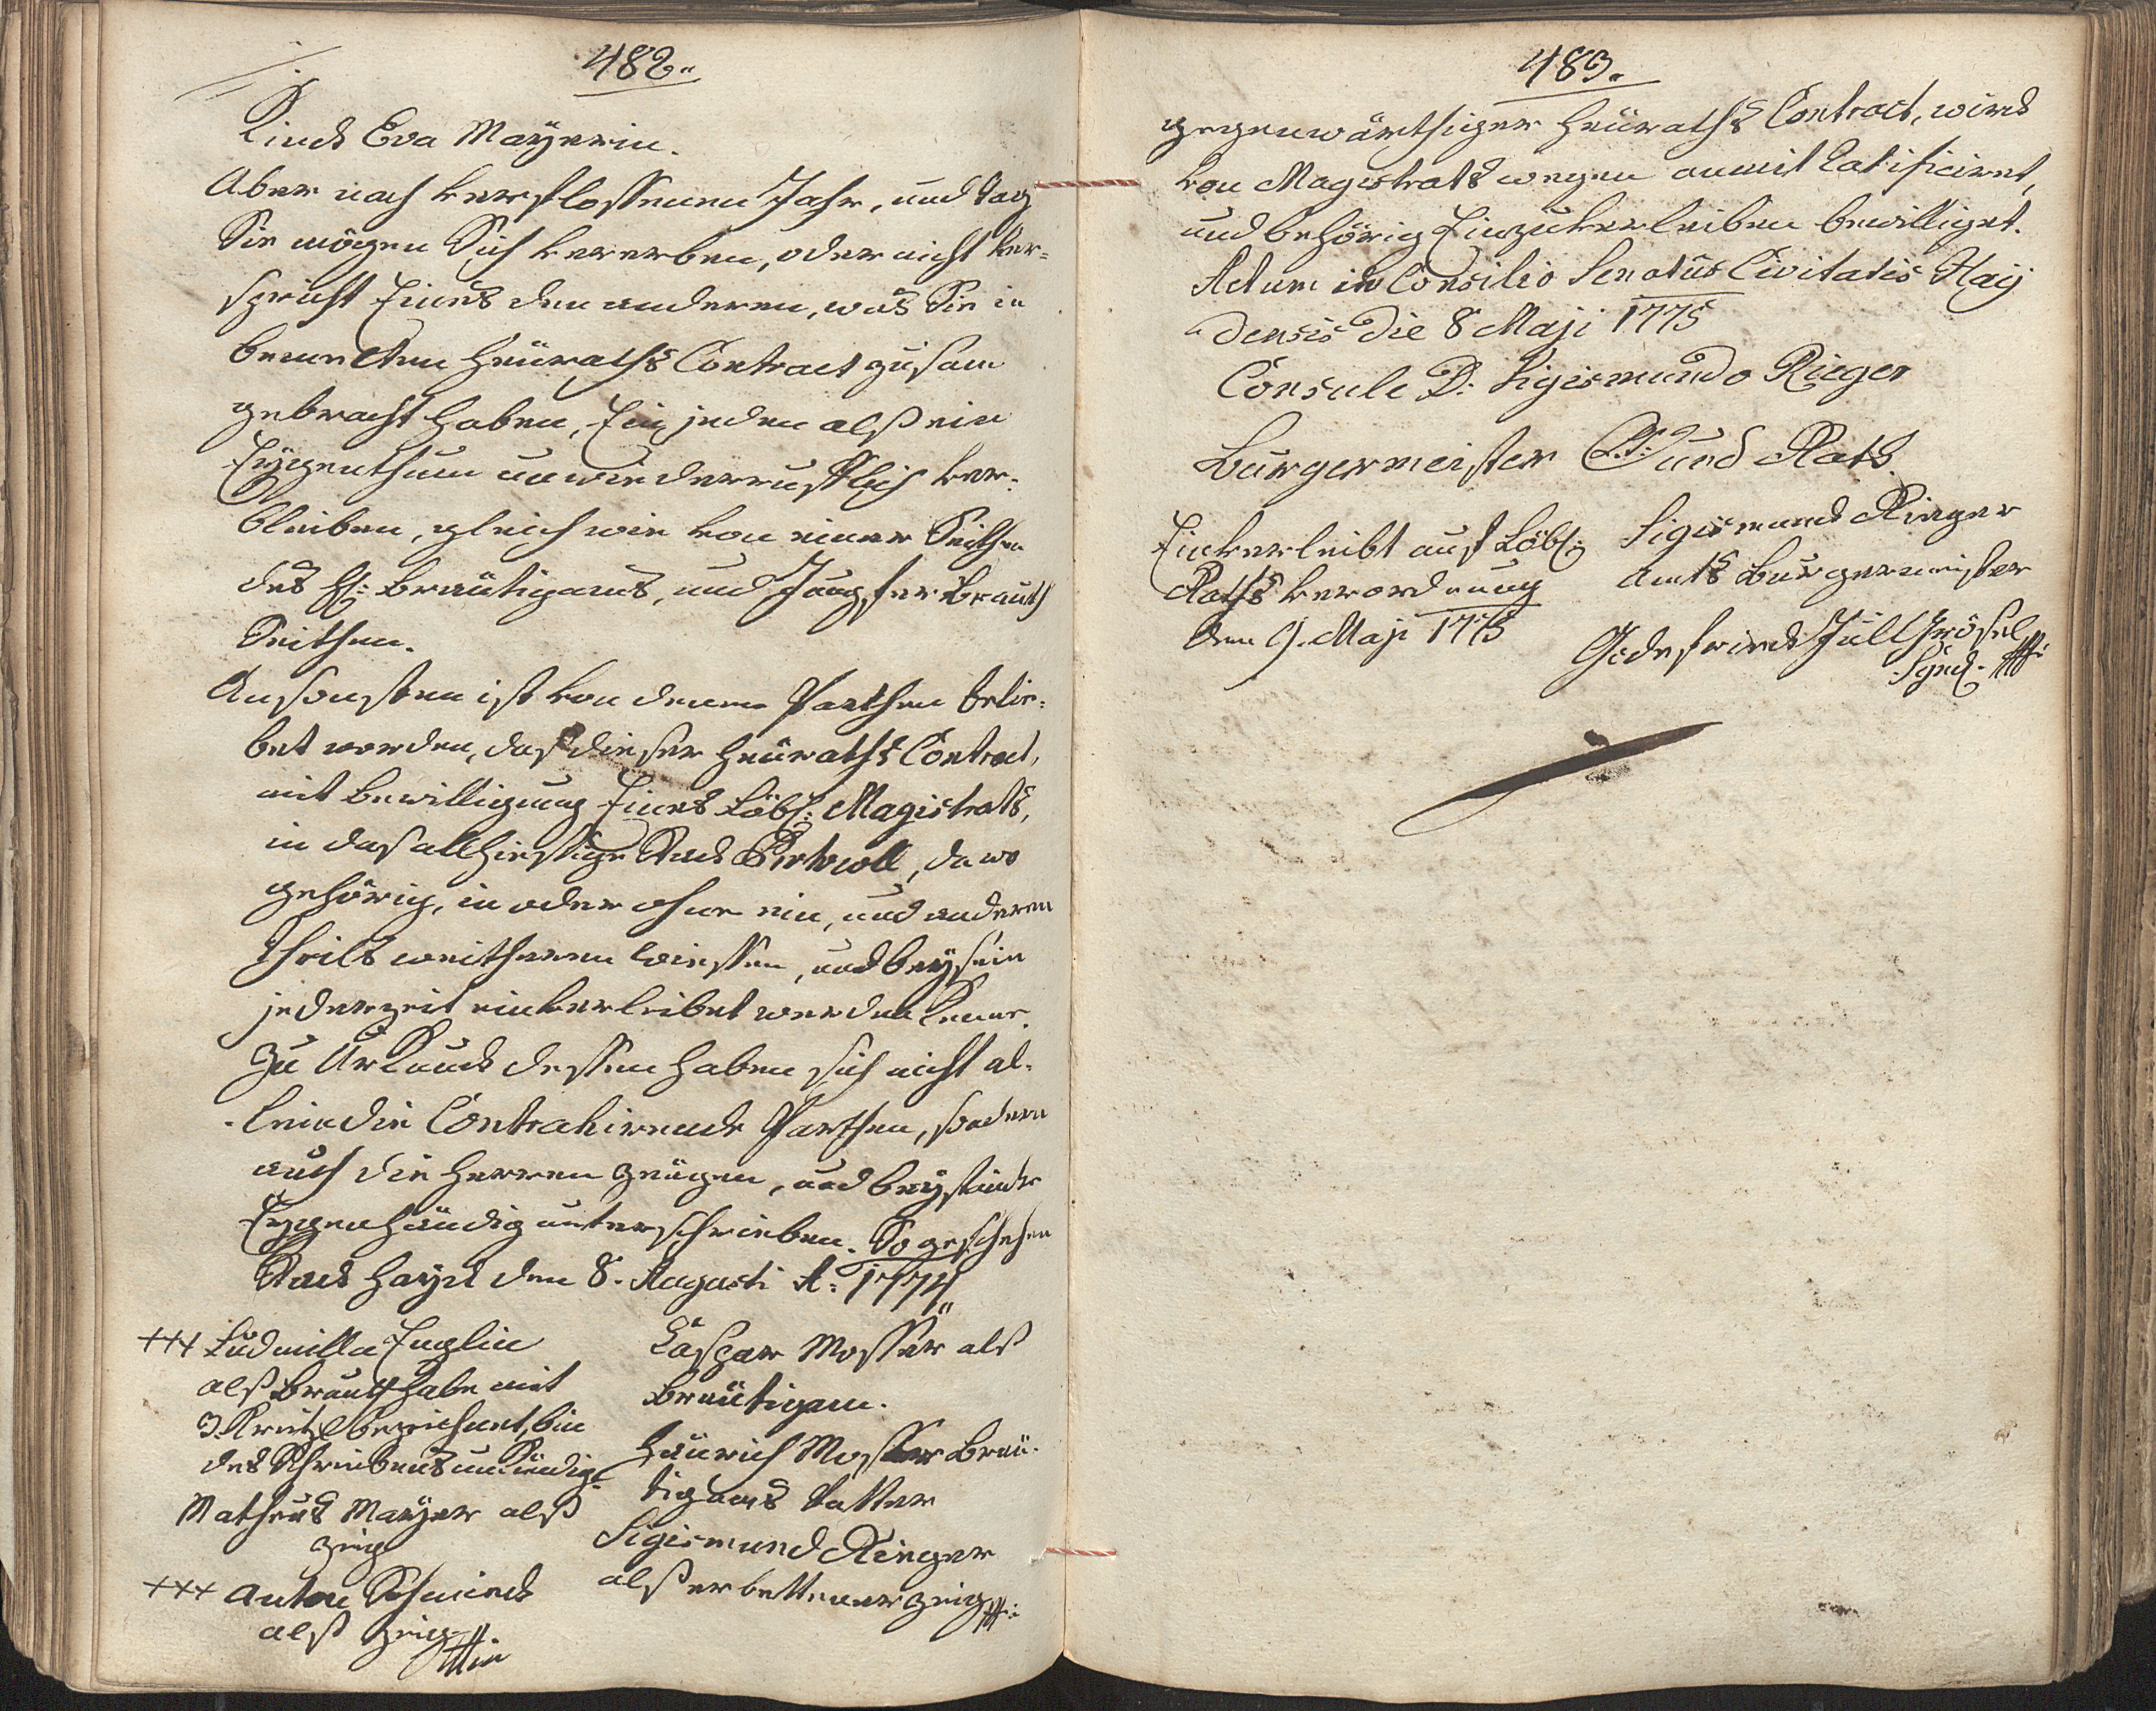 482.
Kinds Eva Mayerin.
Aber nach verflossenen Jahr, und Tag
Sie mögen Sich vererben, oder nicht ver-
spricht Eines den anderen, was Sie in
benenten Heüraths Contract zusam
gebracht haben, Ein jeden alß ein
Eygenthum unwiederrufflich ver-
bleiben, gleich wie von einer Seithen
des H: Bräutigams, und Jungfer Brauth
Seithen.
Ansonsten ist von denen Parthen belie-
bet worden, daß dieser Heüraths Contract,
mit Bewilligung Eines Löbl: Magistrats,
in das allhiesige Stadt Protocoll, da wo
gehörig, in oder ohne ein, und anderen
Theils weitheren wiessen, und beysein
jederzeit einverleibet werden könne.
Zu Urkund dessen haben sich nicht al-
lein die Contrahirende Parthen, sondern
auch die Herren Zeügen, und beystände
Eygenhändig unterschrieben. So geschehen
Stadt Hayd den 8. Augusti A: 1774
+++ Ludmilla Englin
alß Brauth habe mit
3 Kreützl bezeichnet, bin
des Schreibens unkündig.
Matheus Mayer alß
Zeig
+++ Anton Schmied
alß Zeig
Caspar Mosser alß
Bräutigam.
Heinrich Mosser Bräu-
tigams Vatter
Sigismund Rieger
alß erbettener Zeig
483.
gegenwärthiger Heüraths Contract, wird
von Magistrats wegen anmit Ratificiret,
und behörig Einzuverleiben bewilliget.
Actum in Consilio Senatus Civitatis Hay
densis die 8 Maji 1775
Consule D: Sigismundo Rieger
Burgermeister L.S. und Rath
Einverleibt auf Löbl:
Raths verordnung
den 9. Maji 1775
Sigismund Rieger
Amts Burgermeister
Godefried Füllgrösel
Synd.